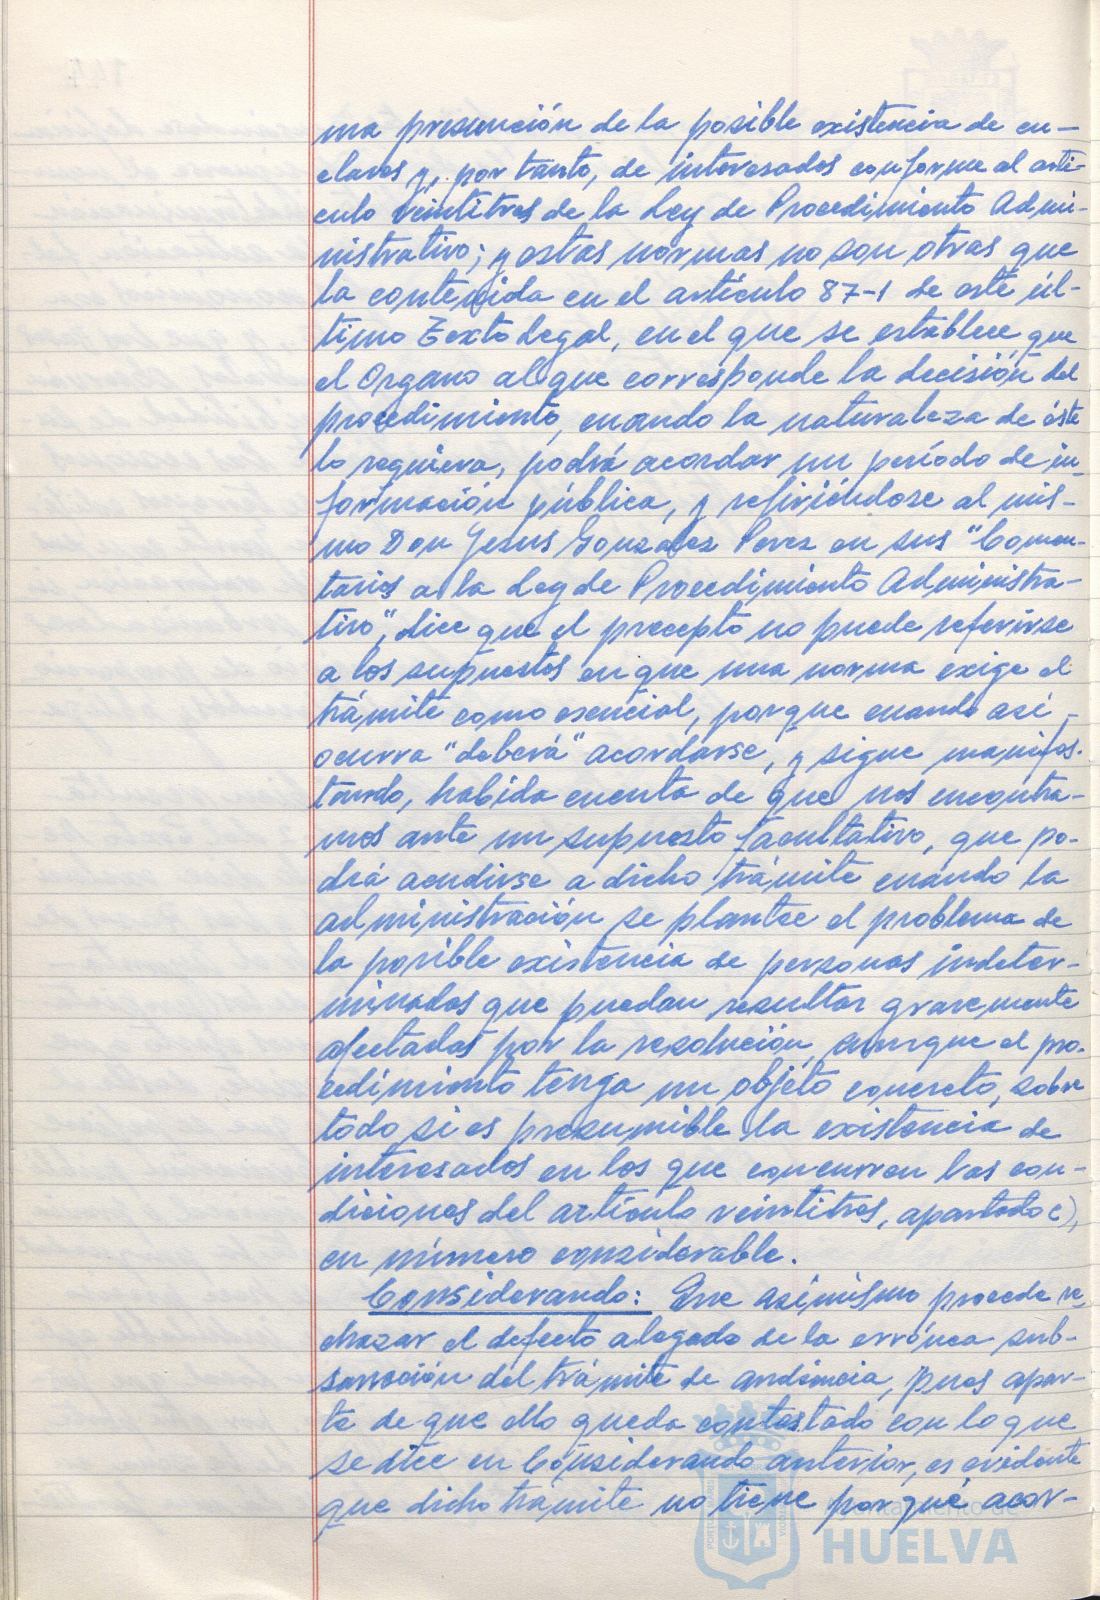 ma presunción de la posible existencia de en-
claves y, por tanto, de interesados conforme al artí-
culo veintitres de la Ley de Procedimiento Admi-
nistrativo; y estas normas no son otras que
la contenida en el artículo 87-1 de este úl-
timo Texto Legal, en el que se establece que
el Organo al que corresponde la decisión del
procedimiento, cuando la naturaleza de éste
lo requiera, podrá acordar un período de in-
formación pública, y refiriéndose al mis-
mo Don Jesus Gonzalez Perez en sus "Comen-
tarios a la Ley de Procedimiento Administra-
tivo", dice que el precepto no puede referirse
a los supuestos en que una norma exige el
trámite como esencial, porque cuando así
ocurra "deberá" acordarse, y sigue manifes-
tando, habida cuenta de que nos encontra-
mos ante un supuesto facultativo, que po-
drá acudirse a dicho trámite cuando la
administración se plantee el problema de
la posible existencia de personas indeter-
minadas que puedan resultar gravemente
afectadas por la resolución, aunque el pro-
cedimiento tenga un objeto concreto, sobre
todo si es presumible la existencia de
interesados en los que concurren las con-
diciones del artículo veintitres, apartado c),
en número considerable.
Considerando: Que asimismo procede re-
chazar el defecto alegado de la errónea sub-
sanación del trámite de audiencia, pues apar-
te de que ello queda contestado con lo que
se dice en Considerando anterior, es evidente
que dicho trámite no tiene por qué acor-
Ayuntamiento de
HUELVA